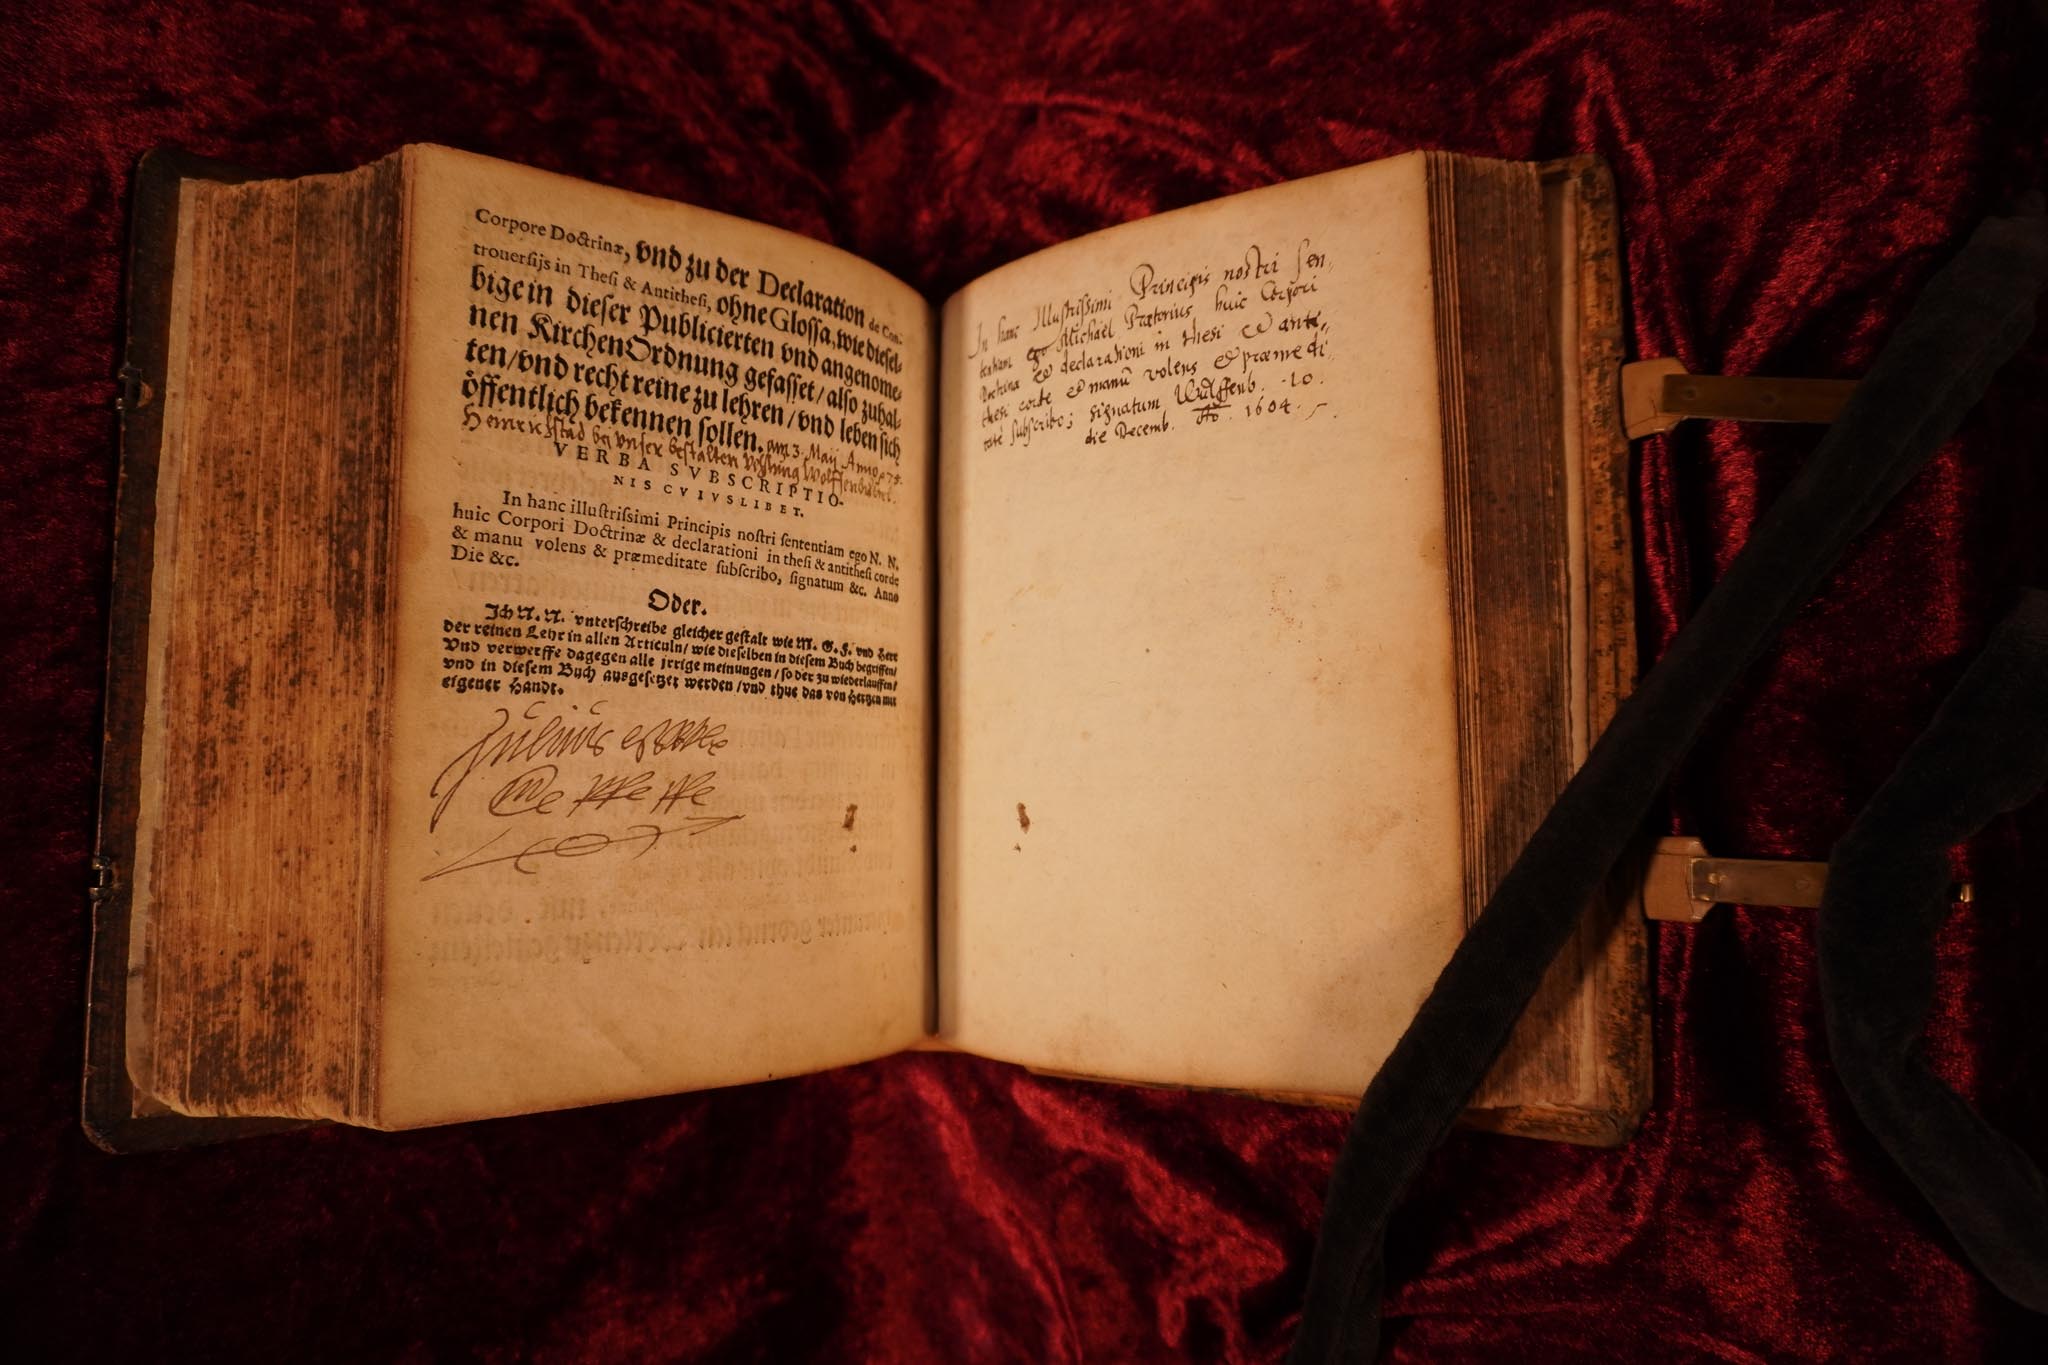 Corpore Doctrinæ, vnd zu der Declaration de Con-
trouersijs in Thesi & Antithesi, ohne Glossa, wie diesel-
bige in dieser Publicierten vnd angenome-
nen KirchenOrdnung gefasset / also zuhal-
ten / vnd recht reine zu lehren / vnd leben sich
öffentlich bekennen sollen. am 3. Maij Anno
Heinrichstad bei vnser bestalten Wolffenbuttel.
VERBA SVBSCRIPTIO-
NIS CVIVSLIBET.
In hanc illustrissimi Principis nostri sententiam ego N. N.
huic Corpori Doctrinæ & declarationi in thesi & antithesi corde
& manu volens & præmeditate subscribo, signatum &c. Anno
Die &c.
Oder.
Ich N. N. vnterschreibe gleicher gestalt wie M. G. F. vnd Herr
der reinen Lehr in allen Articuln / wie dieselben in diesem Buch begriffen /
Vnd verwerffe dagegen alle jrrige meinungen / so der zu wiederlauffen /
vnd in diesem Buch ausgesetzet werden / vnd thue das von Hertzen mit
eigener Handt.
Julius
In hanc Illustrissimi Principis nostri sen-
tentiam ego Michaël Prætorius huic Corpori
Doctrinæ & declarationi in thesi & anti-
thesi corde & manũ volens & præmedi-
tatè subscribo; signatum Wulffenb. 10.
die Decemb. Ao. 1604.